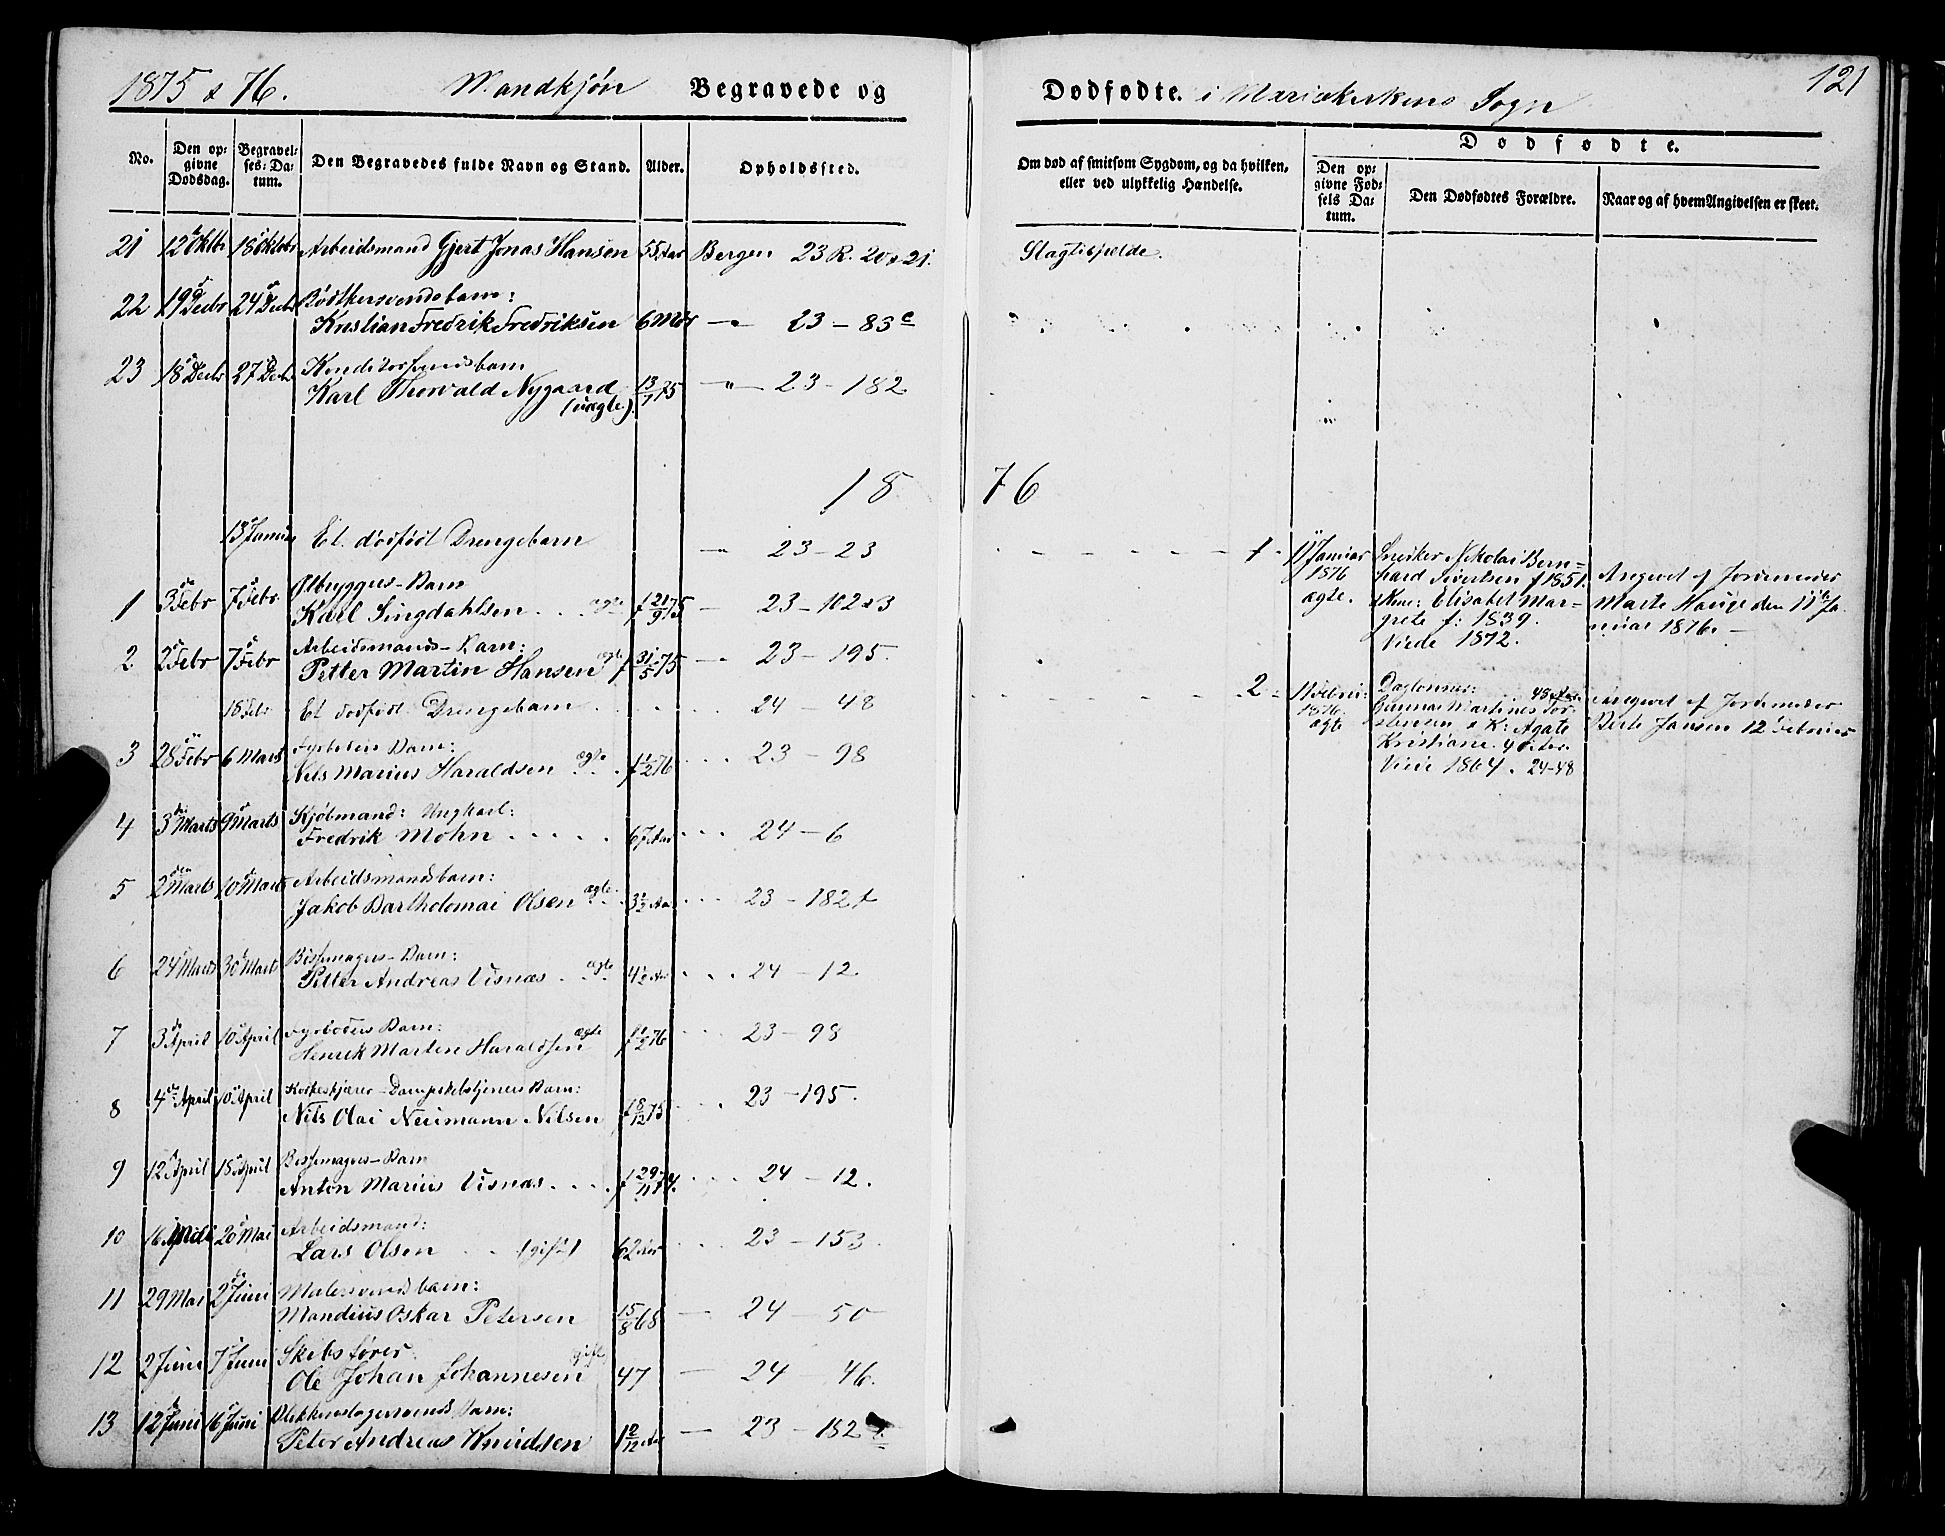 1875 & 76. Mandkjøn Begravede og Dødfødte. i Mariækirkens Sogn 121
No. Den opgivne Dødsdag. Begravelses-Datum. Den Begravedes fulde Navn og Stand. Alder. Opholdssted. Om død af smitsom Sygdom, og da hvilken, eller ved ulykkelig Hændelse. Dødfødte.
Den opgivne Fødsels Datum. Den Dødfødtes Forældre. Naar og af hvem Angivelsen er skeet.
21 12 Oktbr 18 Oktobr Arbeidsmand Gjert Jonas Hansen 55 Aar Bergen 23 R. 20 & 21. Slagtilfælde.
22 19 Decbr 24 Decbr Bødkersvendsbarn:
Kristian Fredrik Fredriksen 6 Mdr — 23 — 83 c
23 18 Decbr 27 Decbr Konditorsvendsbarn
Karl Thorvald Nygaard 13/7 75 — " — 23 — 182
(uægte)
18 76
13 Januar Et dødfødt Drengebarn — 23 — 23 1 11 Januar 1876 ægte. Snedker Nikolai Bern-
hard Sivertsen f 1851.
& Kone: Elisabet Mar-
grete f: 1839.
Viede 1872.
Angivet af Jordemoder
Marte Hauge den 11 Ja
nuar 1876. —
1 3 Febr 7 Febr Ølbryggers-Barn
Karl Singdahlsen ægte f 21/9 75 — 23 — 102 & 3
2 2 Febr 7 Febr Arbeidsmands-Barn:
Petter Martin Hansen ægte f 31/5 75 — 23 — 195.
18 Febr Et dødfødt Drengebarn 24 — 48 2 11 Februar 1876 ægte Daglønner: 48 Aar
Gunnar Martines Tor-
stensen & K: Agate
Kristiane. 40 Aar.
Viede 1864. 24-48
Angivet af Jordemoder
Berte Jansen 12 Februar
3 28 Febr 6 Marts Fyrbøders Barn:
Nils Marius Haraldsen ægte f 1/2 76 23 — 98
4 3 Marts 9 Marts Kjøbmand: Ungkarl:
Fredrik Mohn 67 Aar 24 — 6
5 2 Marts 10 Marts Arbeidsmandsbarn:
Jakob Bartholomai Olsen ægte 3 1/2 Aar 23 — 182
6 24 Marts 30 Marts Bøssemagers-Barn:
Petter Andreas Visnæs ægte 4 1/2 Aar 24 — 12.
7 3 April 10 April Fyrbøders Barn:
Henrik Martin Haraldsen ægte f 1/2 76 23 — 98
8 4 April 10 April Barn:
Nils Olai Neumann Nilsen f 8/12 75 23 — 195.
9 12 April 18 April Bøssemagers-Barn
Anton Marius Visnæs f 29/11 74. 24 — 12.
10 16 20 Mai Arbeidsmand:
Lars Olsen (gift) 62 Aar 23 — 153.
11 29 Mai 2 Juni Malersvendsbarn:
Mandius Oskar Petersen 15/8 68 — 24 — 50
12 2 Juni 7 Juni Skibsfører.
Ole Johan Johannesen gift 47 — 24 — 46.
13 12 Juni 16 Juni Blikkenslagersvends Barn:
Peter Andreas Knudsen 1 2/12 Aar — 23 — 182